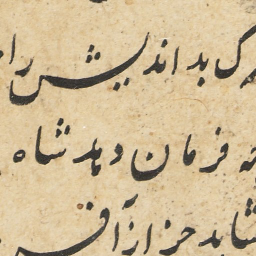 بد اندیش را
فرمان دهد شاه
شاید جز از آفر